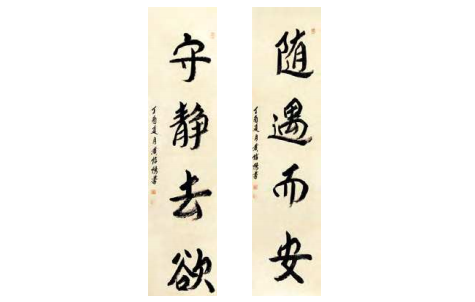 随遇而安
丁酉夏月
守静去欲
丁酉夏月